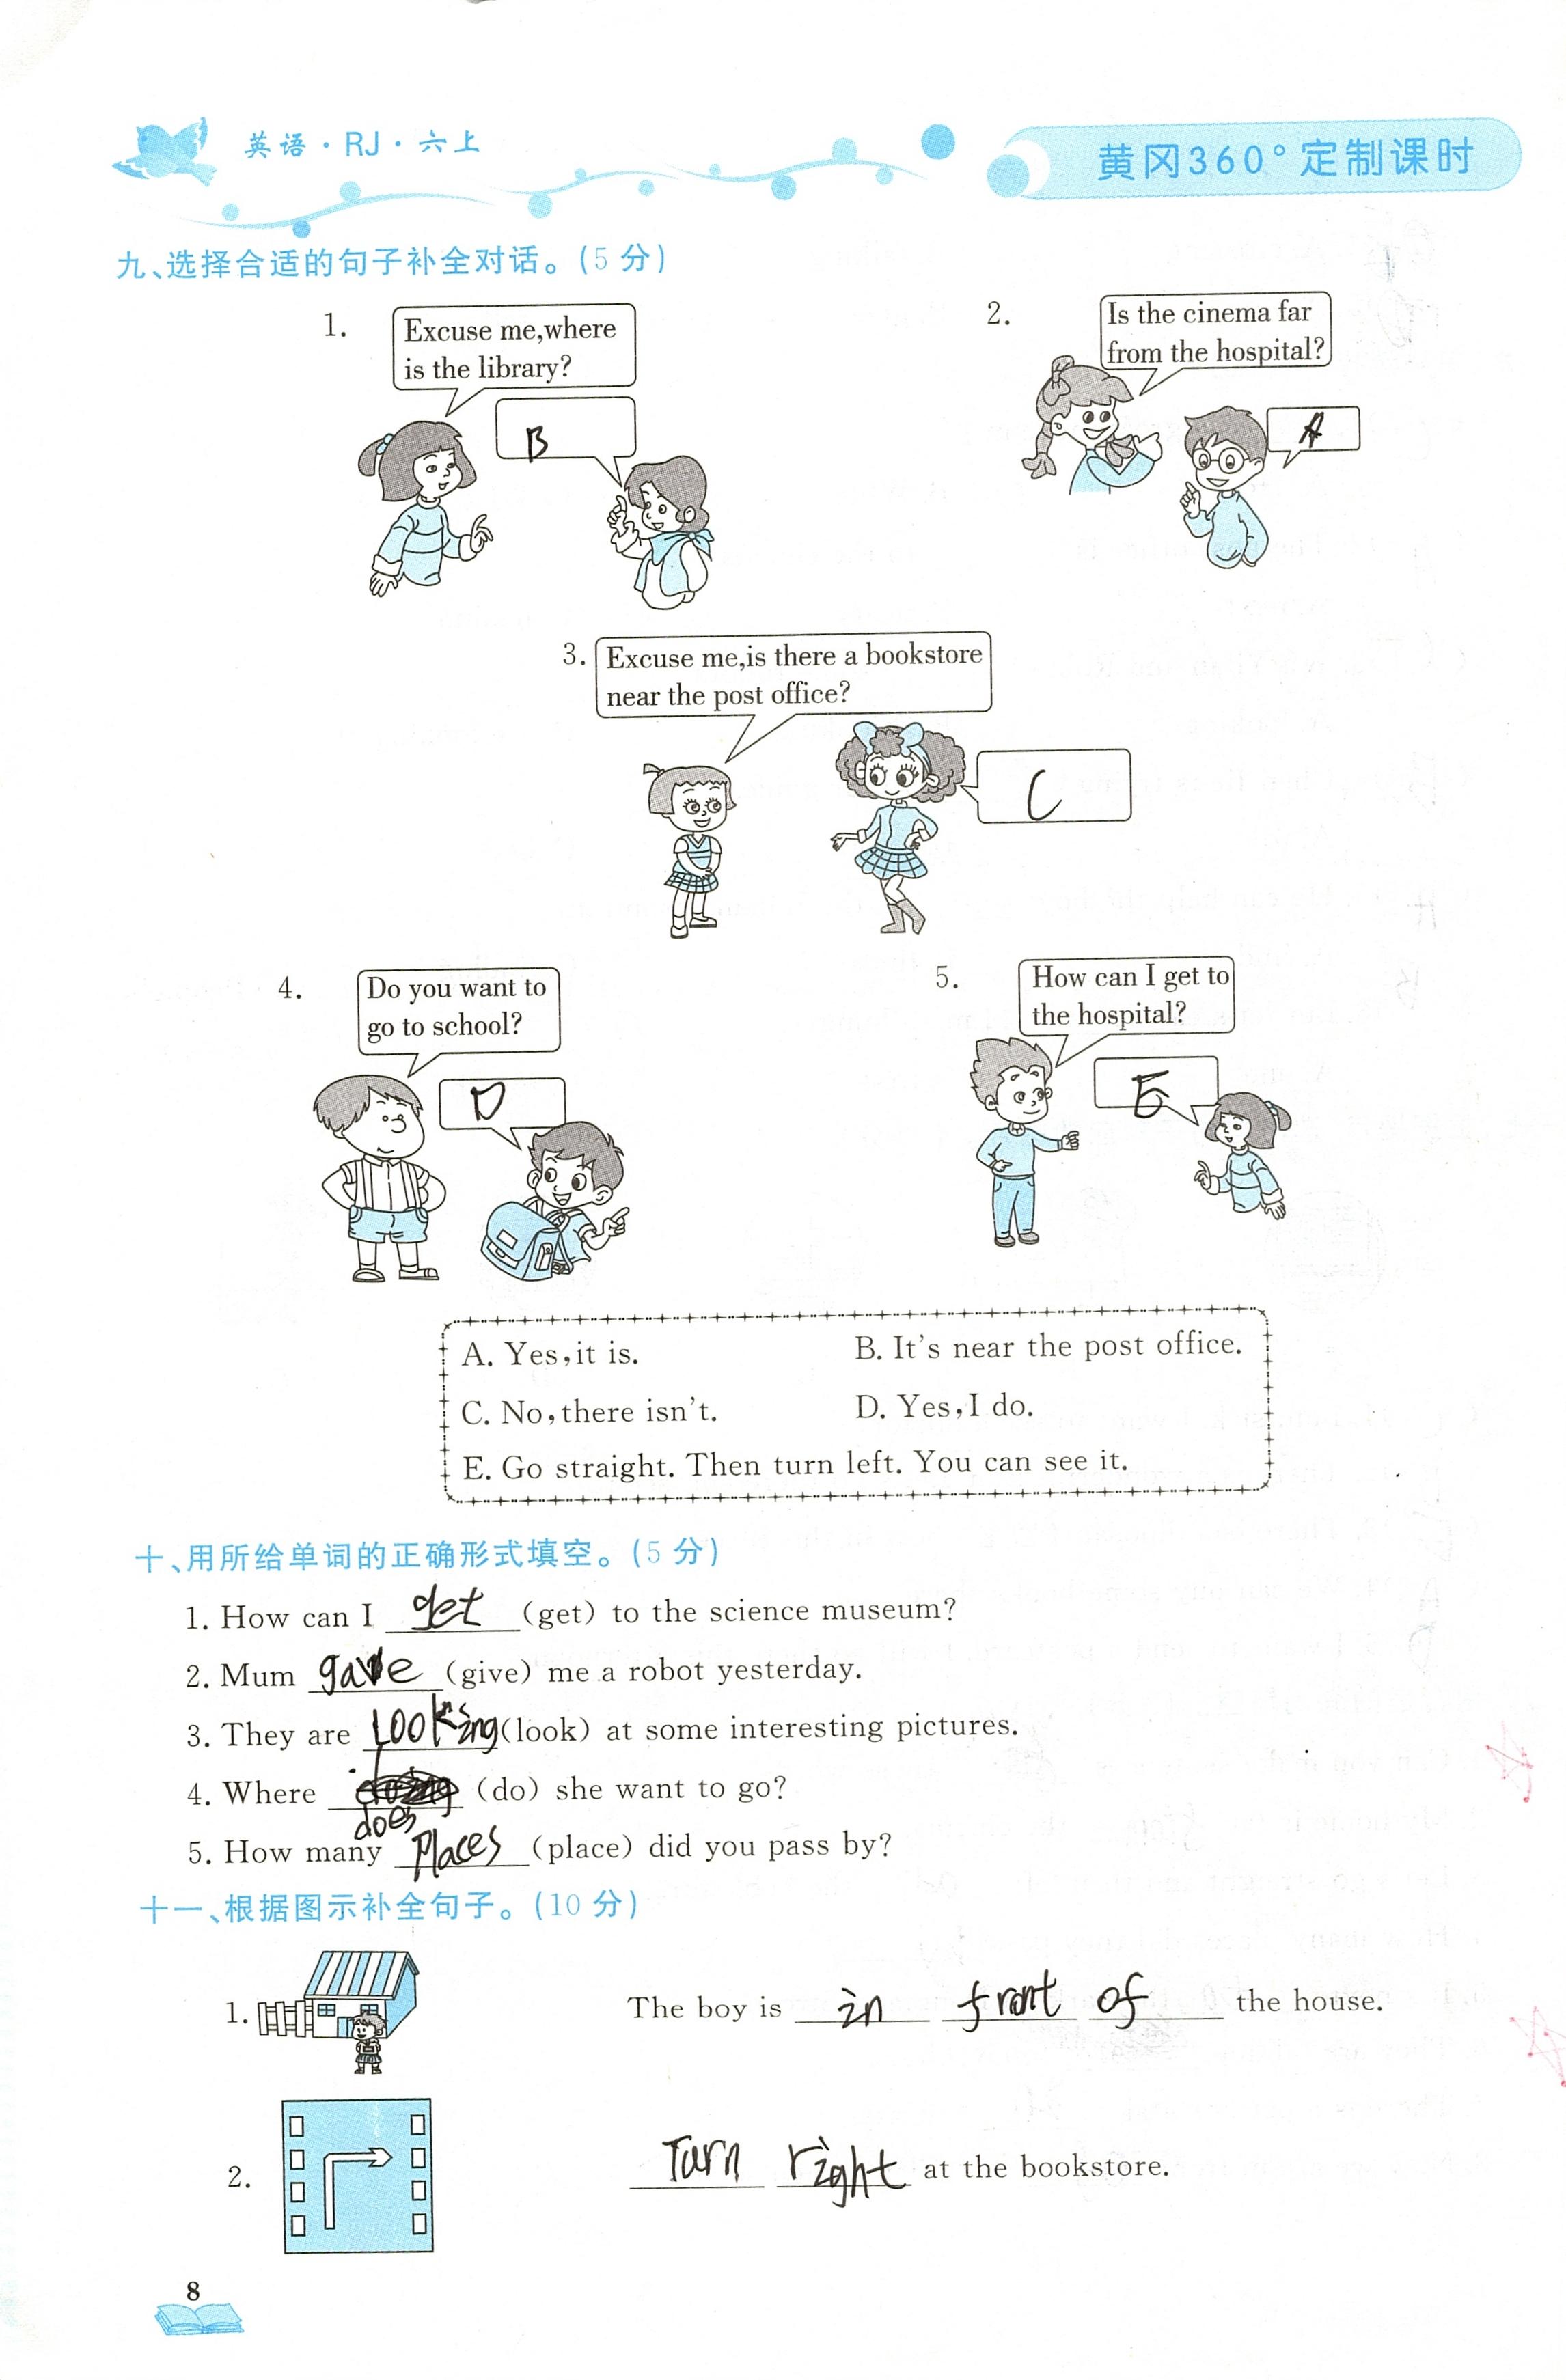 英语·RJ·六上
黄冈360°定制课时
九、选择合适的句子补全对话。(5分)
1.
Excuse me,where
is the library?
B
2.
Is the cinema far
from the hospital?
A
3.
Excuse me,is there a bookstore
near the post office?
C
4.
Do you want to
go to school?
D
5.
How can I get to
the hospital?
E
A. Yes,it is. B. It's near the post office.
C. No,there isn't. D. Yes,I do.
E. Go straight. Then turn left. You can see it.
十、用所给单词的正确形式填空。(5分)
1. How can I get (get) to the science museum?
2. Mum gave (give) me a robot yesterday.
3. They are looking (look) at some interesting pictures.
4. Where does (do) she want to go?
5. How many places (place) did you pass by?
十一、根据图示补全句子。(10分)
1. The boy is in front of the house.
2. Turn right at the bookstore.
8